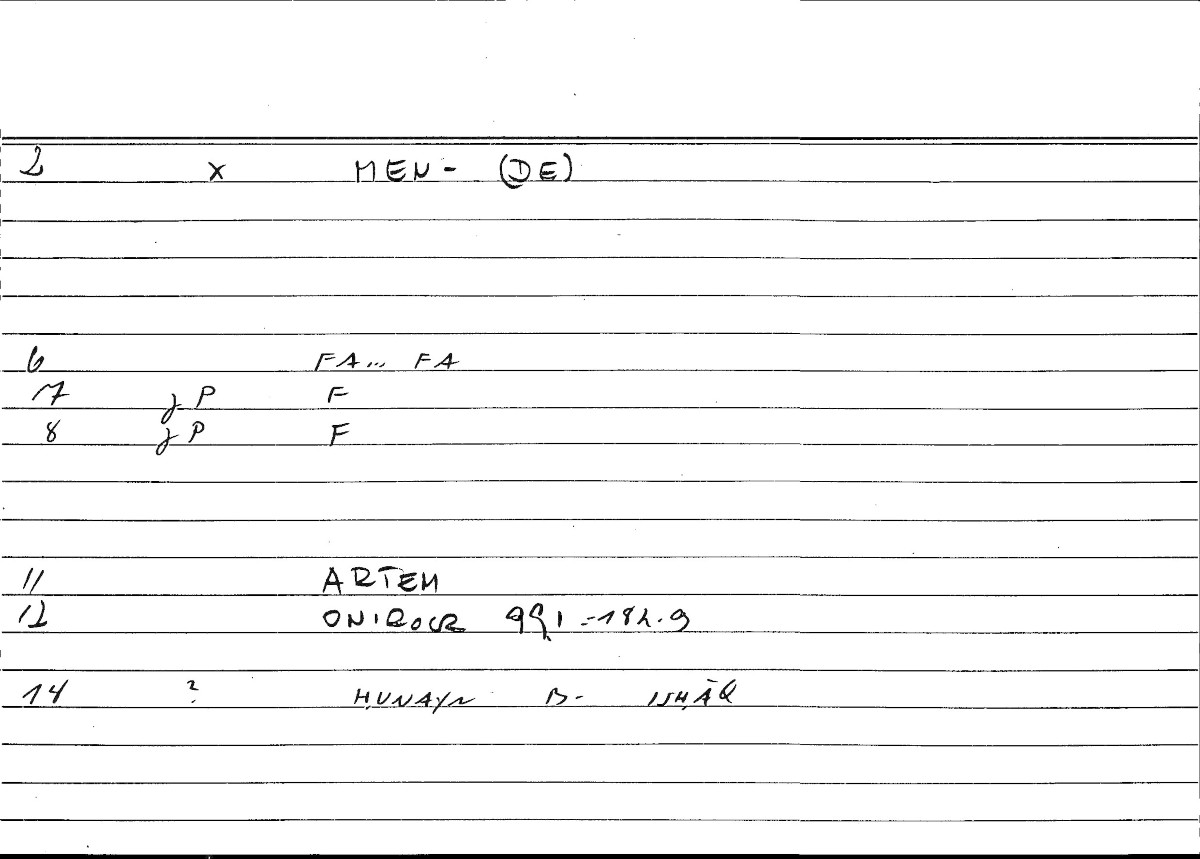 2 x MEN- (DE)
6 FA... FA
17 J P F
8 J P F
11 ARTEM
12 ONIROCR 182.9
14 ? ḤUNAYN B- ISḤĀQ